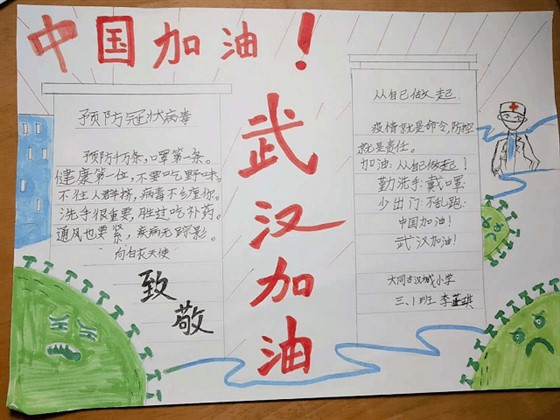 中国加油！
预防冠状病毒
预防千万条，口罩第一条。
健康第一位，不要吃野味。
不往人群挤，病毒不会崖你。
洗手很重要，胜过吃补药。
通风也要紧，疾病无踪影。
向白衣天使
致
敬
武汉加油
从自己做起
疫情就是命令，防控
就是责任。
加油：从自己做起！
勤洗手：戴口罩：
少出门：不乱跑：
中国加油！
武汉加油！
大同古汉城小学
三、1班 李